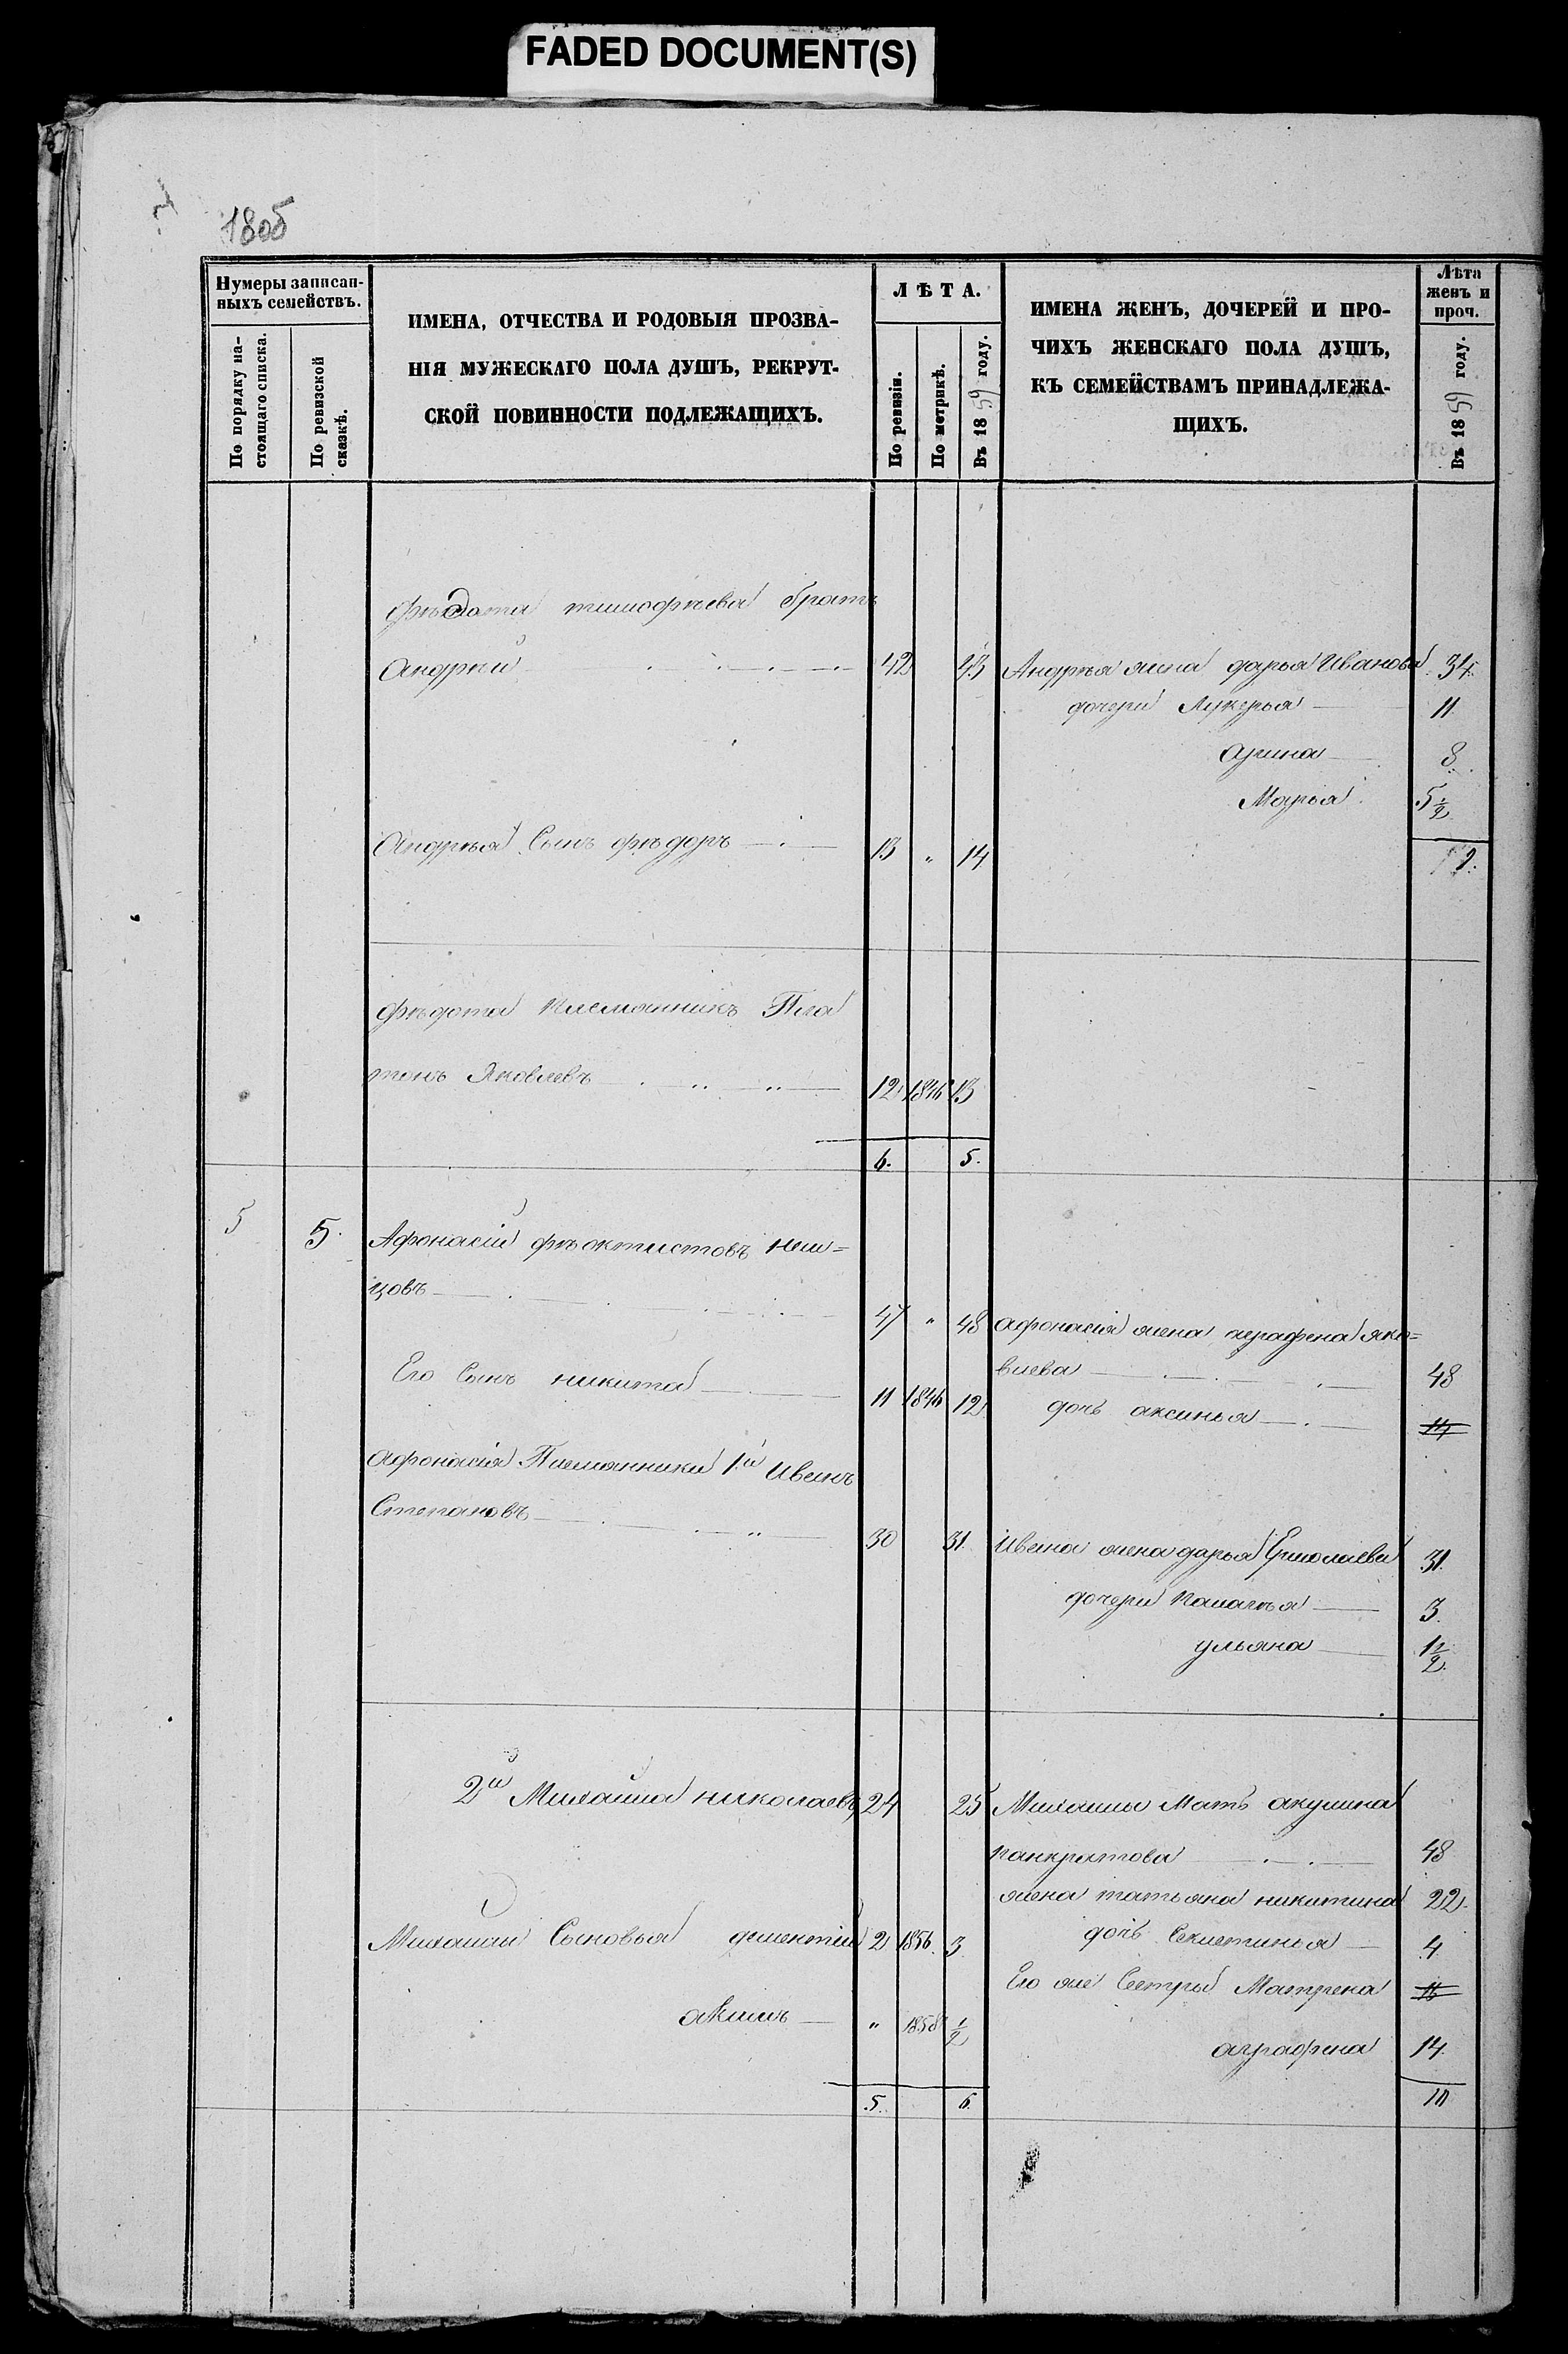 FADED DOCUMENT(S)
1805
Нумеры записан-
ныхъ семействъ.
По порядку на-
стоящаго списка.
По ревизской
сказкѣ.
ИМЕНА, ОТЧЕСТВА И РОДОВЫЯ ПРОЗВА-
НІЯ МУЖЕСКАГО ПОЛА ДУШЪ, РЕКРУТ-
СКОЙ ПОВИННОСТИ ПОДЛЕЖАЩИХЪ.
ЛѢТА.
По ревизіи.
По метрикѣ.
Въ 1859 году.
ИМЕНА ЖЕНЪ, ДОЧЕРЕЙ И ПРО-
ЧИХЪ ЖЕНСКАГО ПОЛА ДУШЪ,
КЪ СЕМЕЙСТВАМЪ ПРИНАДЛЕЖА-
ЩИХЪ.
Лѣта
женъ и
проч.
Въ 1859 году.
Фѣдота тимофѣева братъ
Андрѣй 42 43 Андрѣя жена дарья Иванова 34.
дочери Лукерья 11
Арина 8.
Марья 5 1/2
Андрѣя Сынъ фѣдоръ 13 " 14
фѣдота племянникъ Пла
тонъ Яковлевъ 12 1846 13
6. 5.
5 5. Афонасій фѣоктистовъ
цовъ 47 " 48 афонасія жена аграфена яко=
влева 48
Его Сынъ никита 11 1846 12 дочь аксинья 14
афонасія Племянники 1й Иванъ
Степановъ 30 31. Ивана жена дарья Ермолаева 31.
дочери 3.
ульяна 1 1/2
2й Михайла николаевъ 24 25 Михайлы Мать акулина
панкратова 48
жена татьяна никитина 22.
Михайлы Сыновья дементій 2 1856. 3 дочь 4
Его же Сестры Матрена 16
акимъ " 1858 1/2
аграфена 14.
5. 6. 10